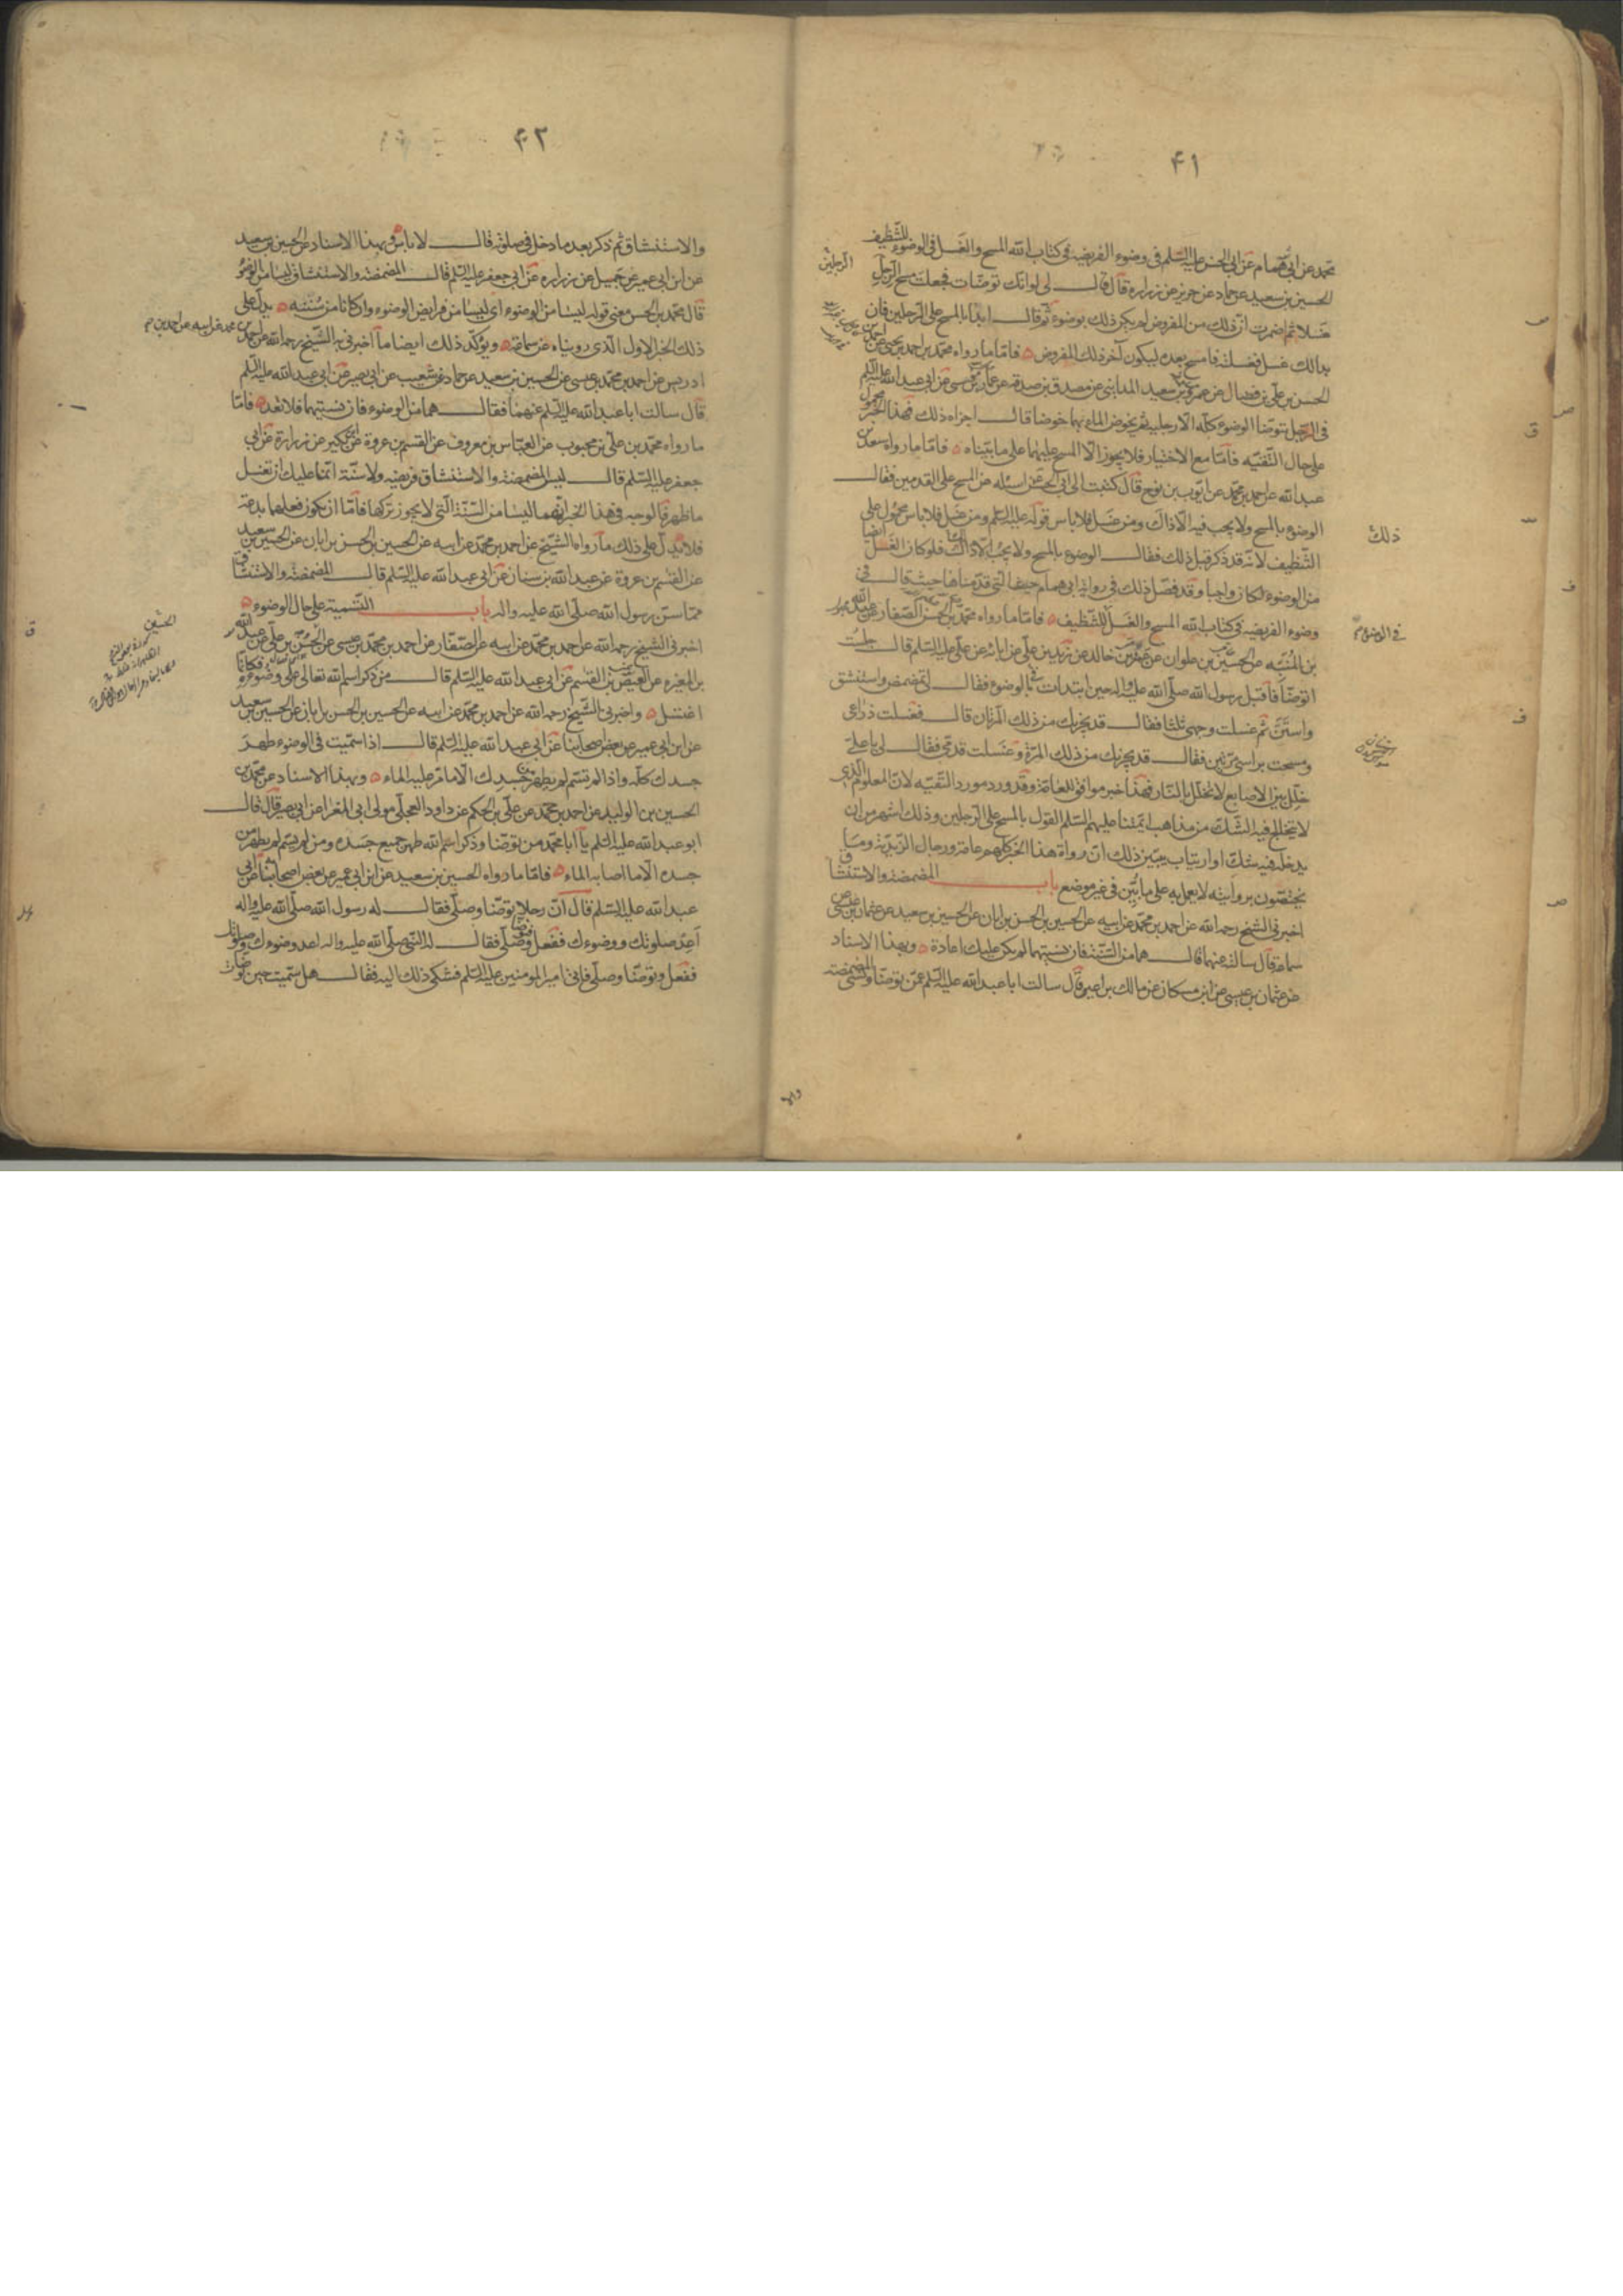 ۴۱
محمد عن ابی همام عن ابی الحسن علیه السلم فی وضوء الفریضه فی کتاب الله المسح والغسل فی الوضوء للتنظیف
الحسین بن سعید عن حماد عن حریز عن زراره قال قال لی لو انک توضات فجعلت مسح الرجل
غسلا ثم اضمرت ان ذلک من المفروض لم یکن ذلک بوضوء ثم قال ابدا بالمسح علی الرجلین فان
بدا لک غسل فغسلته فامسح بعده لیکون آخر ذلک المفروض فاما ما رواه محمد بن احمد بن یحیی عن احمد بن
الحسن بن علی بن فضال عن عمرو بن سعید المداینی عن مصدق بن صدقه عن عمار بن موسی عن ابی عبد الله علیه السلم
فی الرجل یتوضا الوضوء کله الا رجلیه ثم یخوض الماء بهما خوضا قال اجزاه ذلک فهذا الخبر محمول
علی حال التقیه فاما مع الاختیار فلا یجوز الا المسح علیهما علی ما بیناه فاما ما رواه سعد بن
عبد الله عن احمد بن محمد عن ایوب بن نوح قال کتبت الی ابی الحسن اسئله عن المسح علی القدمین فقال
الوضوء بالمسح ولا یجب فیه الا ذاک ومن غسل فلا باس قوله علیه السلم ومن غسل فلا باس محمول علی
التنظیف لانه قد ذکر قبل ذلک فقال الوضوء بالمسح ولا یجب الا ذاک فلو کان الغسل ایضا
من الوضوء لکان واجبا وقد فصل ذلک فی روایة ابی همام التی قدمناها حیث قال فی
وضوء الفریضه فی کتاب الله المسح والغسل للتنظیف فاما ما رواه محمد بن الحسن الصفار عن عبید الله
بن المنبه عن الحسین بن علوان عن عمرو بن خالد عن زید بن علی عن ابائه عن علی علیه السلم قال جلست
اتوضا فاقبل رسول الله صلی الله علیه واله حین ابتدات فی الوضوء فقال لی تمضمض واستنشق
واستن ثم غسلت وجهی ثلثا فقال قد یجزیک من ذلک المرتان قال فغسلت ذراعی
ومسحت براسی مرتین فقال قد یجزیک من ذلک المرة وغسلت قدمی فقال لی یا علی
خلل بین الاصابع لا تخلل بالنار فهذا خبر موافق للعامة وقد ورد مورد التقیه لان المعلوم الذی
لا یتخالج فیه الشک من مذاهب ائمتنا علیهم السلم القول بالمسح علی الرجلین وذلک اشهر من ان
یدخل فیه شک او ارتیاب یبین ذلک ان رواة هذا الخبر کلهم عامة ورجال الزیدیة وما
یختصون بروایته لا یعمل به علی ما بین فی غیر موضع باب المضمضة والاستنشاق
اخبرنی الشیخ رحمه الله عن احمد بن محمد عن ابیه عن الحسین بن الحسن بن ابان عن الحسین بن سعید عن عثمان بن عیسی عن
سماعة قال سالته عنهما قال هما من السنة فان نسیتهما لم یکن علیک اعادة وبهذا الاسناد
عن عثمان بن عیسی عن ابن مسکان عن مالک بن اعین قال سالت ابا عبد الله علیه السلم عمن توضا ونسی المضمضة
الرجلین
ذلک
فی الوضوء
۴۲
والاستنشاق ثم ذکر بعد ما دخل فی صلوته قال لا باس وبهذا الاسناد عن الحسین بن سعید
عن ابن ابی عمیر عن جمیل عن زراره عن ابی جعفر علیه السلم قال المضمضة والاستنشاق لیسا من الوضوء
قال محمد بن الحسن معنی قوله لیسا من الوضوء ای لیسا من فرایض الوضوء وان کانا من سننه یدل علی
ذلک الخبر الاول الذی رویناه عن سماعة ویوکد ذلک ایضا ما اخبرنی به الشیخ رحمه الله عن احمد بن
ادریس عن احمد بن محمد بن عیسی عن الحسین بن سعید عن حماد عن شعیب عن ابی بصیر عن ابی عبد الله علیه السلم
قال سالت ابا عبد الله علیه السلم عنهما فقال هما من الوضوء فان نسیتهما فلا تعد فاما
ما رواه محمد بن علی بن محبوب عن العباس بن معروف عن القسم بن عروة عن ابن بکیر عن زرارة عن ابی
جعفر علیه السلم قال لیس المضمضة والاستنشاق فریضه ولا سنة انما علیک ان تغسل
ما ظهر فالوجه فی هذا الخبر انهما لیسا من السنة التی لا یجوز ترکها فاما ان یکون فعلهما بدعة
فلا یدل علی ذلک ما رواه الشیخ عن احمد بن محمد عن ابیه عن الحسین بن الحسن بن ابان عن الحسین بن سعید
عن القسم بن عروة عن عبد الله بن سنان عن ابی عبد الله علیه السلم قال المضمضة والاستنشاق
مما سن رسول الله صلی الله علیه واله باب التسمیة علی حال الوضوء
اخبرنی الشیخ رحمه الله عن احمد بن محمد عن ابیه عن الصفار عن احمد بن محمد بن عیسی عن الحسن بن علی عن عبد الله
بن المغیره عن العیص بن القسم عن ابی عبد الله علیه السلم قال من ذکر اسم الله تعالی علی وضوءه فکانما
اغتسل واخبرنی الشیخ رحمه الله عن احمد بن محمد عن ابیه عن الحسین بن الحسن بن ابان عن الحسین بن سعید
عن ابن ابی عمیر عن بعض اصحابنا عن ابی عبد الله علیه السلم قال اذا سمیت فی الوضوء طهر
جسدک کله واذا لم تسم لم یطهر من جسدک الا ما مر علیه الماء وبهذا الاسناد عن محمد بن
الحسین بن الولید عن احمد بن محمد عن علی بن الحکم عن داود العجلی مولی ابی المغرا عن ابی بصیر قال قال
ابو عبد الله علیه السلم یا ابا محمد من توضا وذکر اسم الله طهر جمیع جسده ومن لم یسم لم یطهر من
جسده الا ما اصابه الماء فاما ما رواه الحسین بن سعید عن ابن ابی عمیر عن بعض اصحابنا عن ابی
عبد الله علیه السلم قال ان رجلا توضا وصلی فقال له رسول الله صلی الله علیه واله
اعد صلوتک ووضوءک ففعل وتوضا وصلی فقال له النبی صلی الله علیه واله اعد وضوءک وصلوتک
ففعل وتوضا وصلی فاتی امیر المومنین علیه السلم فشکی ذلک الیه فقال هل سمیت حین توضات
الحسین
والا